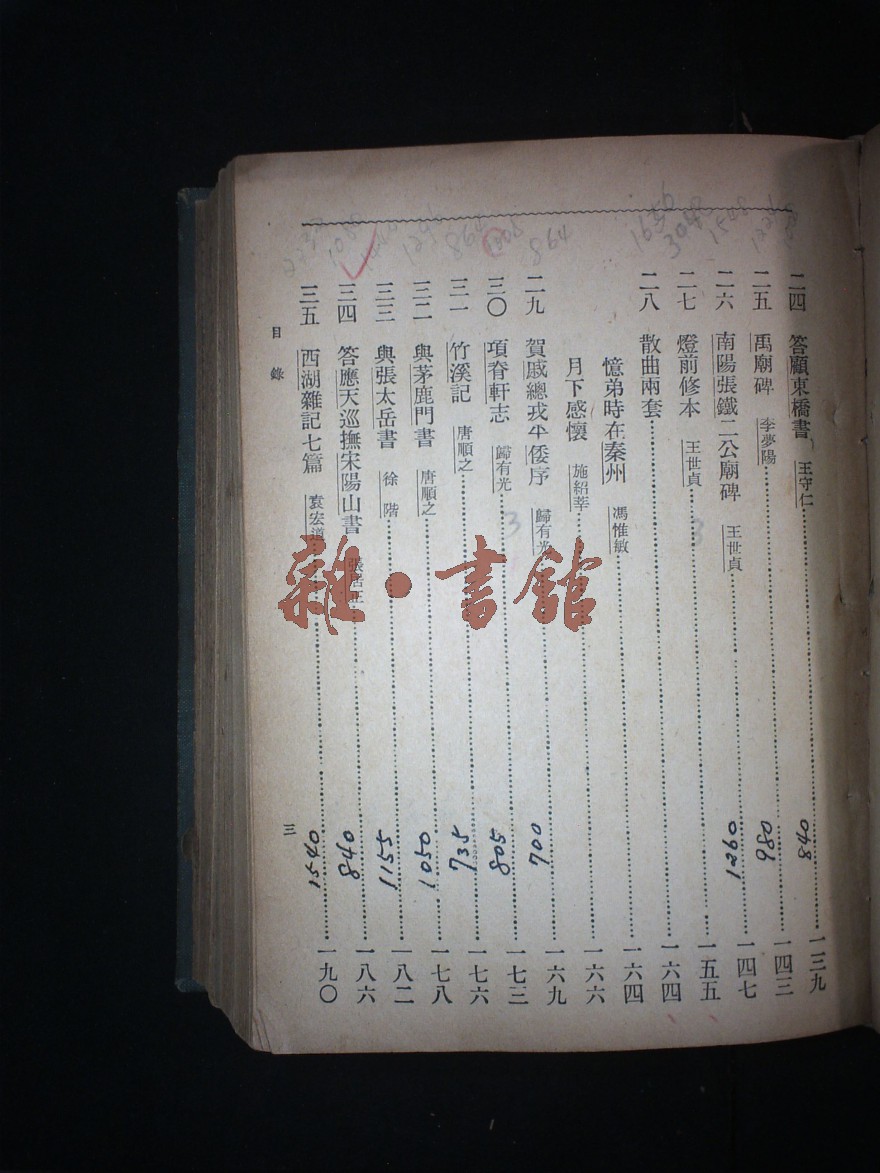 二四 答顧東橋書 王守仁 一三九
840
二五 禹廟碑 李夢陽 一四三
980
二六 南陽張鐵二公廟碑 王世貞 一四七
1290
二七 燈前修本 王世貞 一五五
二八 散曲兩套 一六四
憶弟時在秦州 馮惟敏 一六四
月下感懷 施紹莘 一六六
二九 賀戚總戎平倭序 歸有光 一六九
700
三〇 項脊軒志 歸有光 一七三
805
三一 竹溪記 唐順之 一七六
735
三二 與茅鹿門書 唐順之 一七八
1050
三三 與張太岳書 徐階 一八二
1155
三四 答應天巡撫宋陽山書 張居正 一八六
840
三五 西湖雜記七篇 袁宏道 一九〇
1540
目錄
三
864
3
3
雜·書館